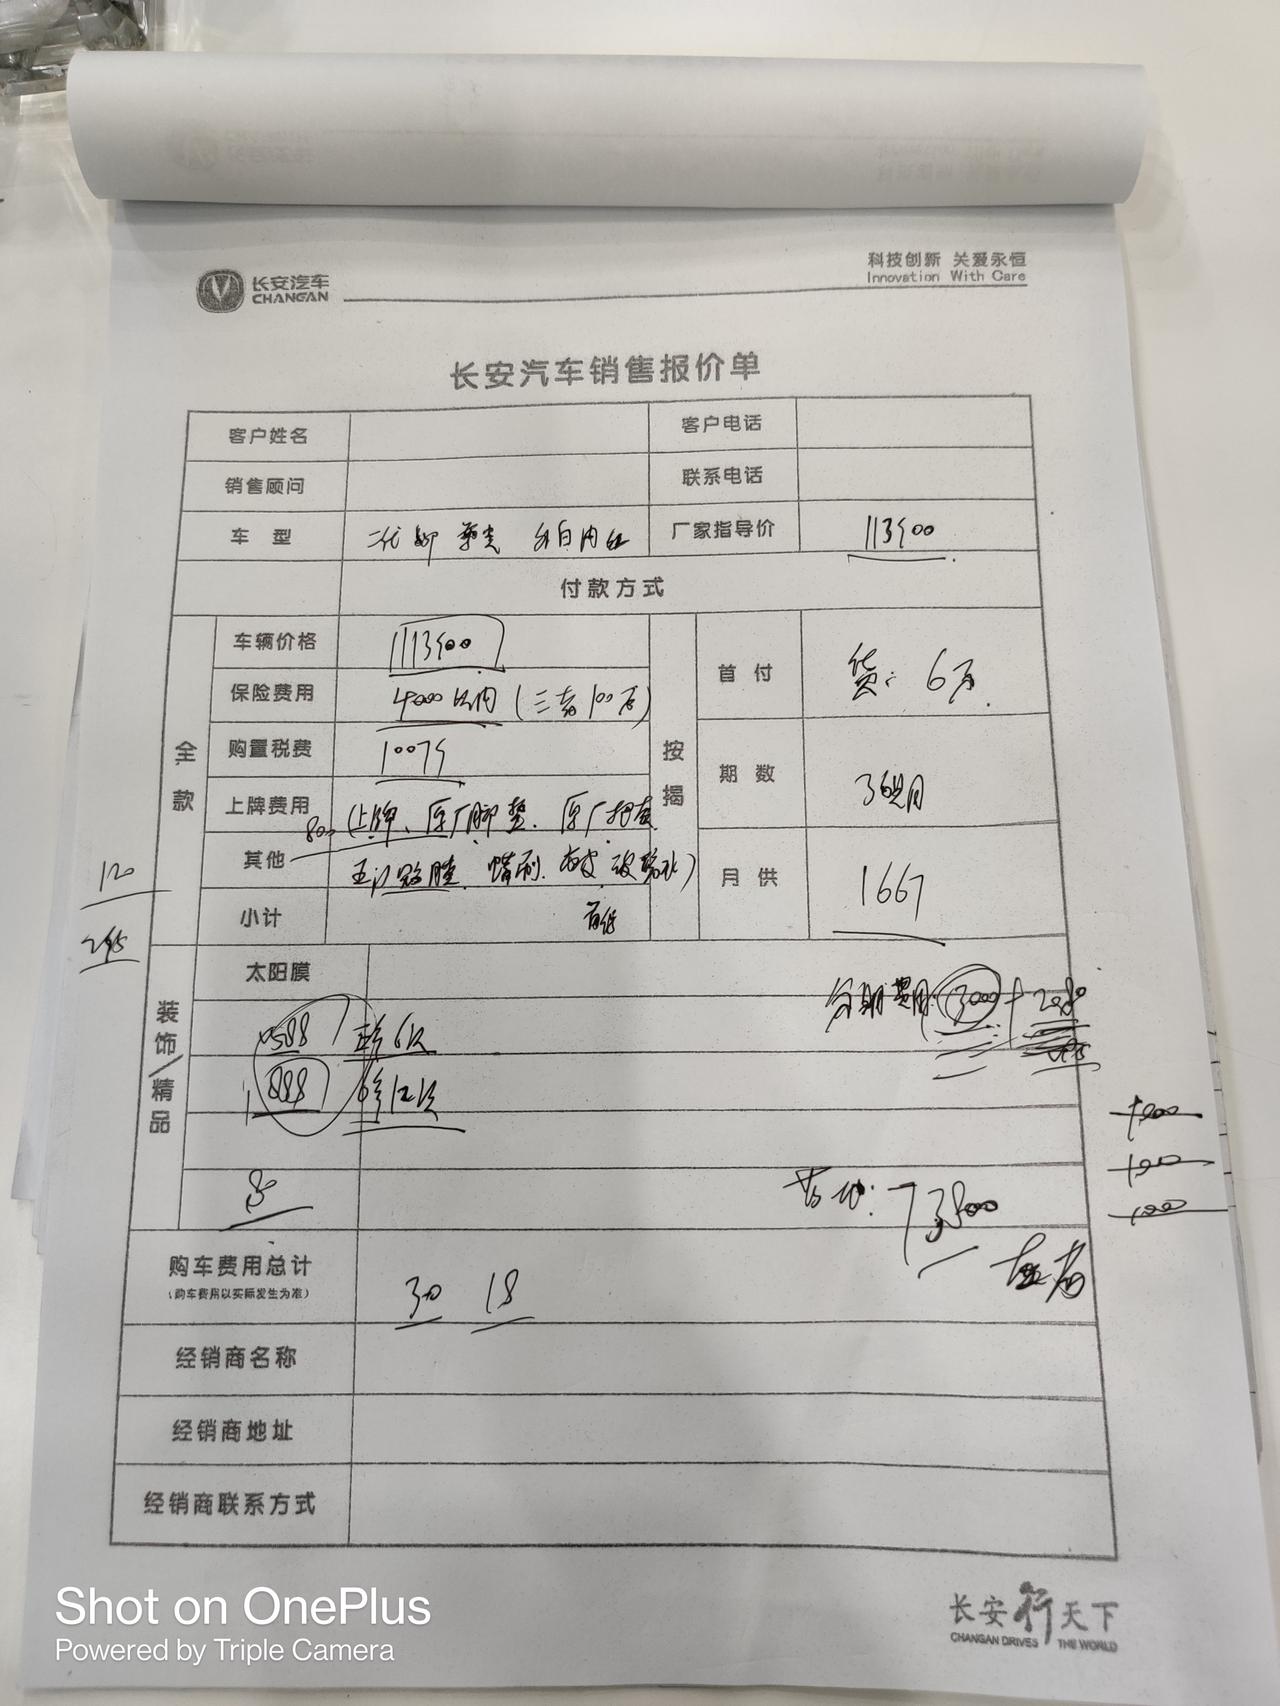 长安汽车
CHANGAN
科技创新 关爱永恒
Innovation With Care
长安汽车销售报价单
客户姓名 客户电话
销售顾问 联系电话
车型 二代 外白内红 厂家指导价 113900
付款方式
全款 按揭
车辆价格 113900
首付 贷: 6万
保险费用 4000以内 (三者100万)
购置税费 10079
期数 36期
上牌费用 (上牌、原厂脚垫、原厂
其他 800
月供 1667
小计
120
295
装饰/精品
太阳膜
分期费用: 3000 + 2080
588
888
1000
1000
1000
首付: 73800
购车费用总计
(购车费用以实际发生为准)
30 18
左右
经销商名称
经销商地址
经销商联系方式
长安行天下
CHANGAN DRIVES THE WORLD
Shot on OnePlus
Powered by Triple Camera